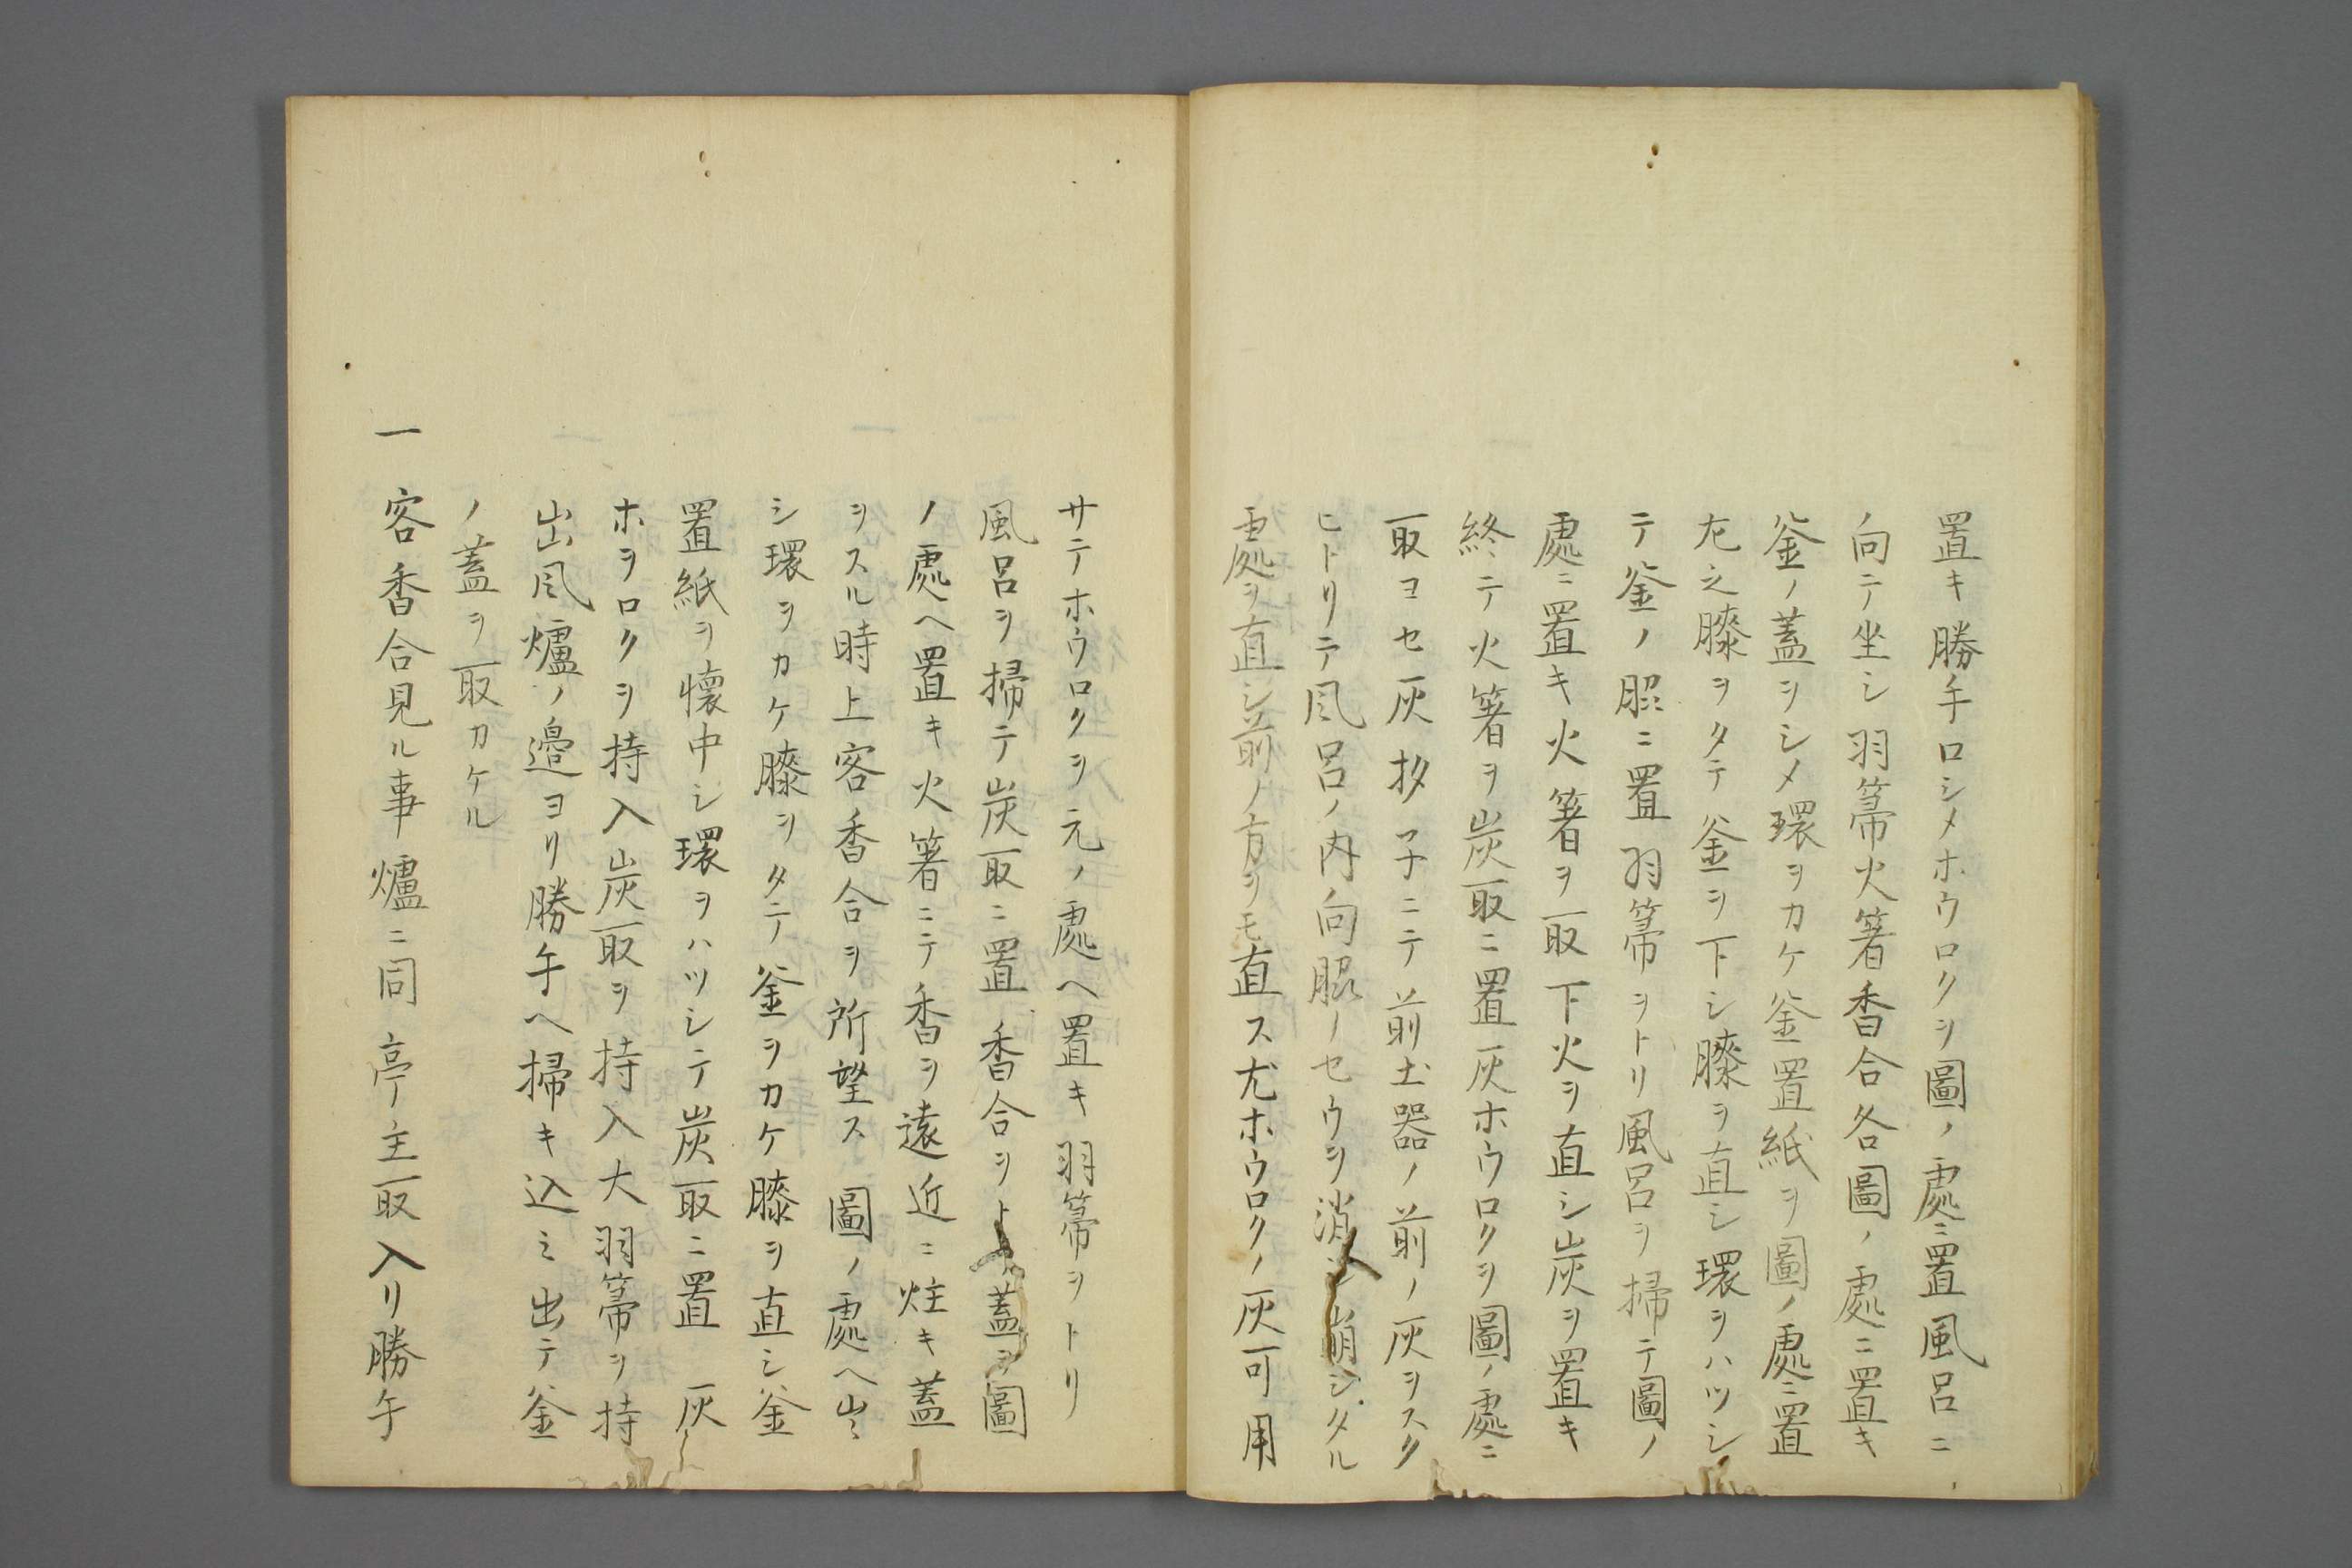 置キ勝手口シメホウロクヲ圖ノ處ニ置風呂ニ
向テ坐シ羽箒火箸香合各圖ノ處ニ置キ
釜ノ蓋ヲシメ環ヲカケ釜置紙ヲ圖ノ處ニ置
左之膝ヲタテ釜ヲ下シ膝ヲ直シ環ヲハツシ
テ釜ノ脇ニ置羽箒ヲトリ風呂ヲ掃テ圖ノ
處ニ置キ火箸ヲ取下火ヲ直シ炭ヲ置キ
終テ火箸ヲ炭取ニ置灰ホウロクヲ圖ノ處ニ
取ヨセ灰抄子ニテ前土器ノ前ノ灰ヲスク
ヒトリテ風呂ノ内向脇ノセウヲ消シ崩シタル
處ヲ直シ前ノ方ヲモ直ス尤ホウロクノ灰可用
サテホウロクヲ元ノ處ヘ置キ羽箒ヲトリ
風呂ヲ掃テ炭取ニ置香合ヲトリ蓋ヲ圖
ノ處ヘ置キ火箸ニテ香ヲ遠近ニ炷キ蓋
ヲスル時上客香合ヲ所望ス圖ノ處ヘ出
シ環ヲカケ膝ヲタテ釜ヲカケ膝ヲ直シ釜
置紙ヲ懐中シ環ヲハツシテ炭取ニ置灰
ホヲロクヲ持入炭取ヲ持入大羽箒ヲ持
出風爐ノ邉ヨリ勝手ヘ掃キ込ミ出テ釜
ノ蓋ヲ取カケル
一客香合見ル事爐ニ同亭主取入リ勝手